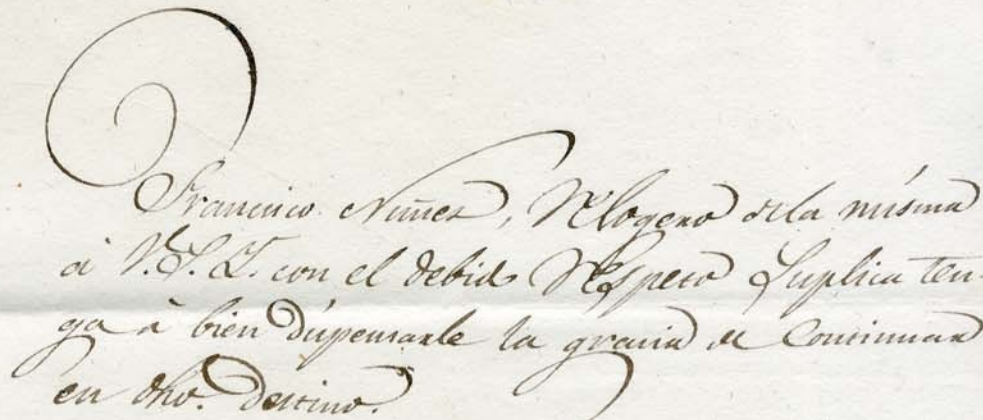 Francisco Nuñez, Relogero de la misma
à V.S.Y. con el debido Respeto Suplica ten-
ga à bien dispensarle la gracia de Continuar
en dho. destino.